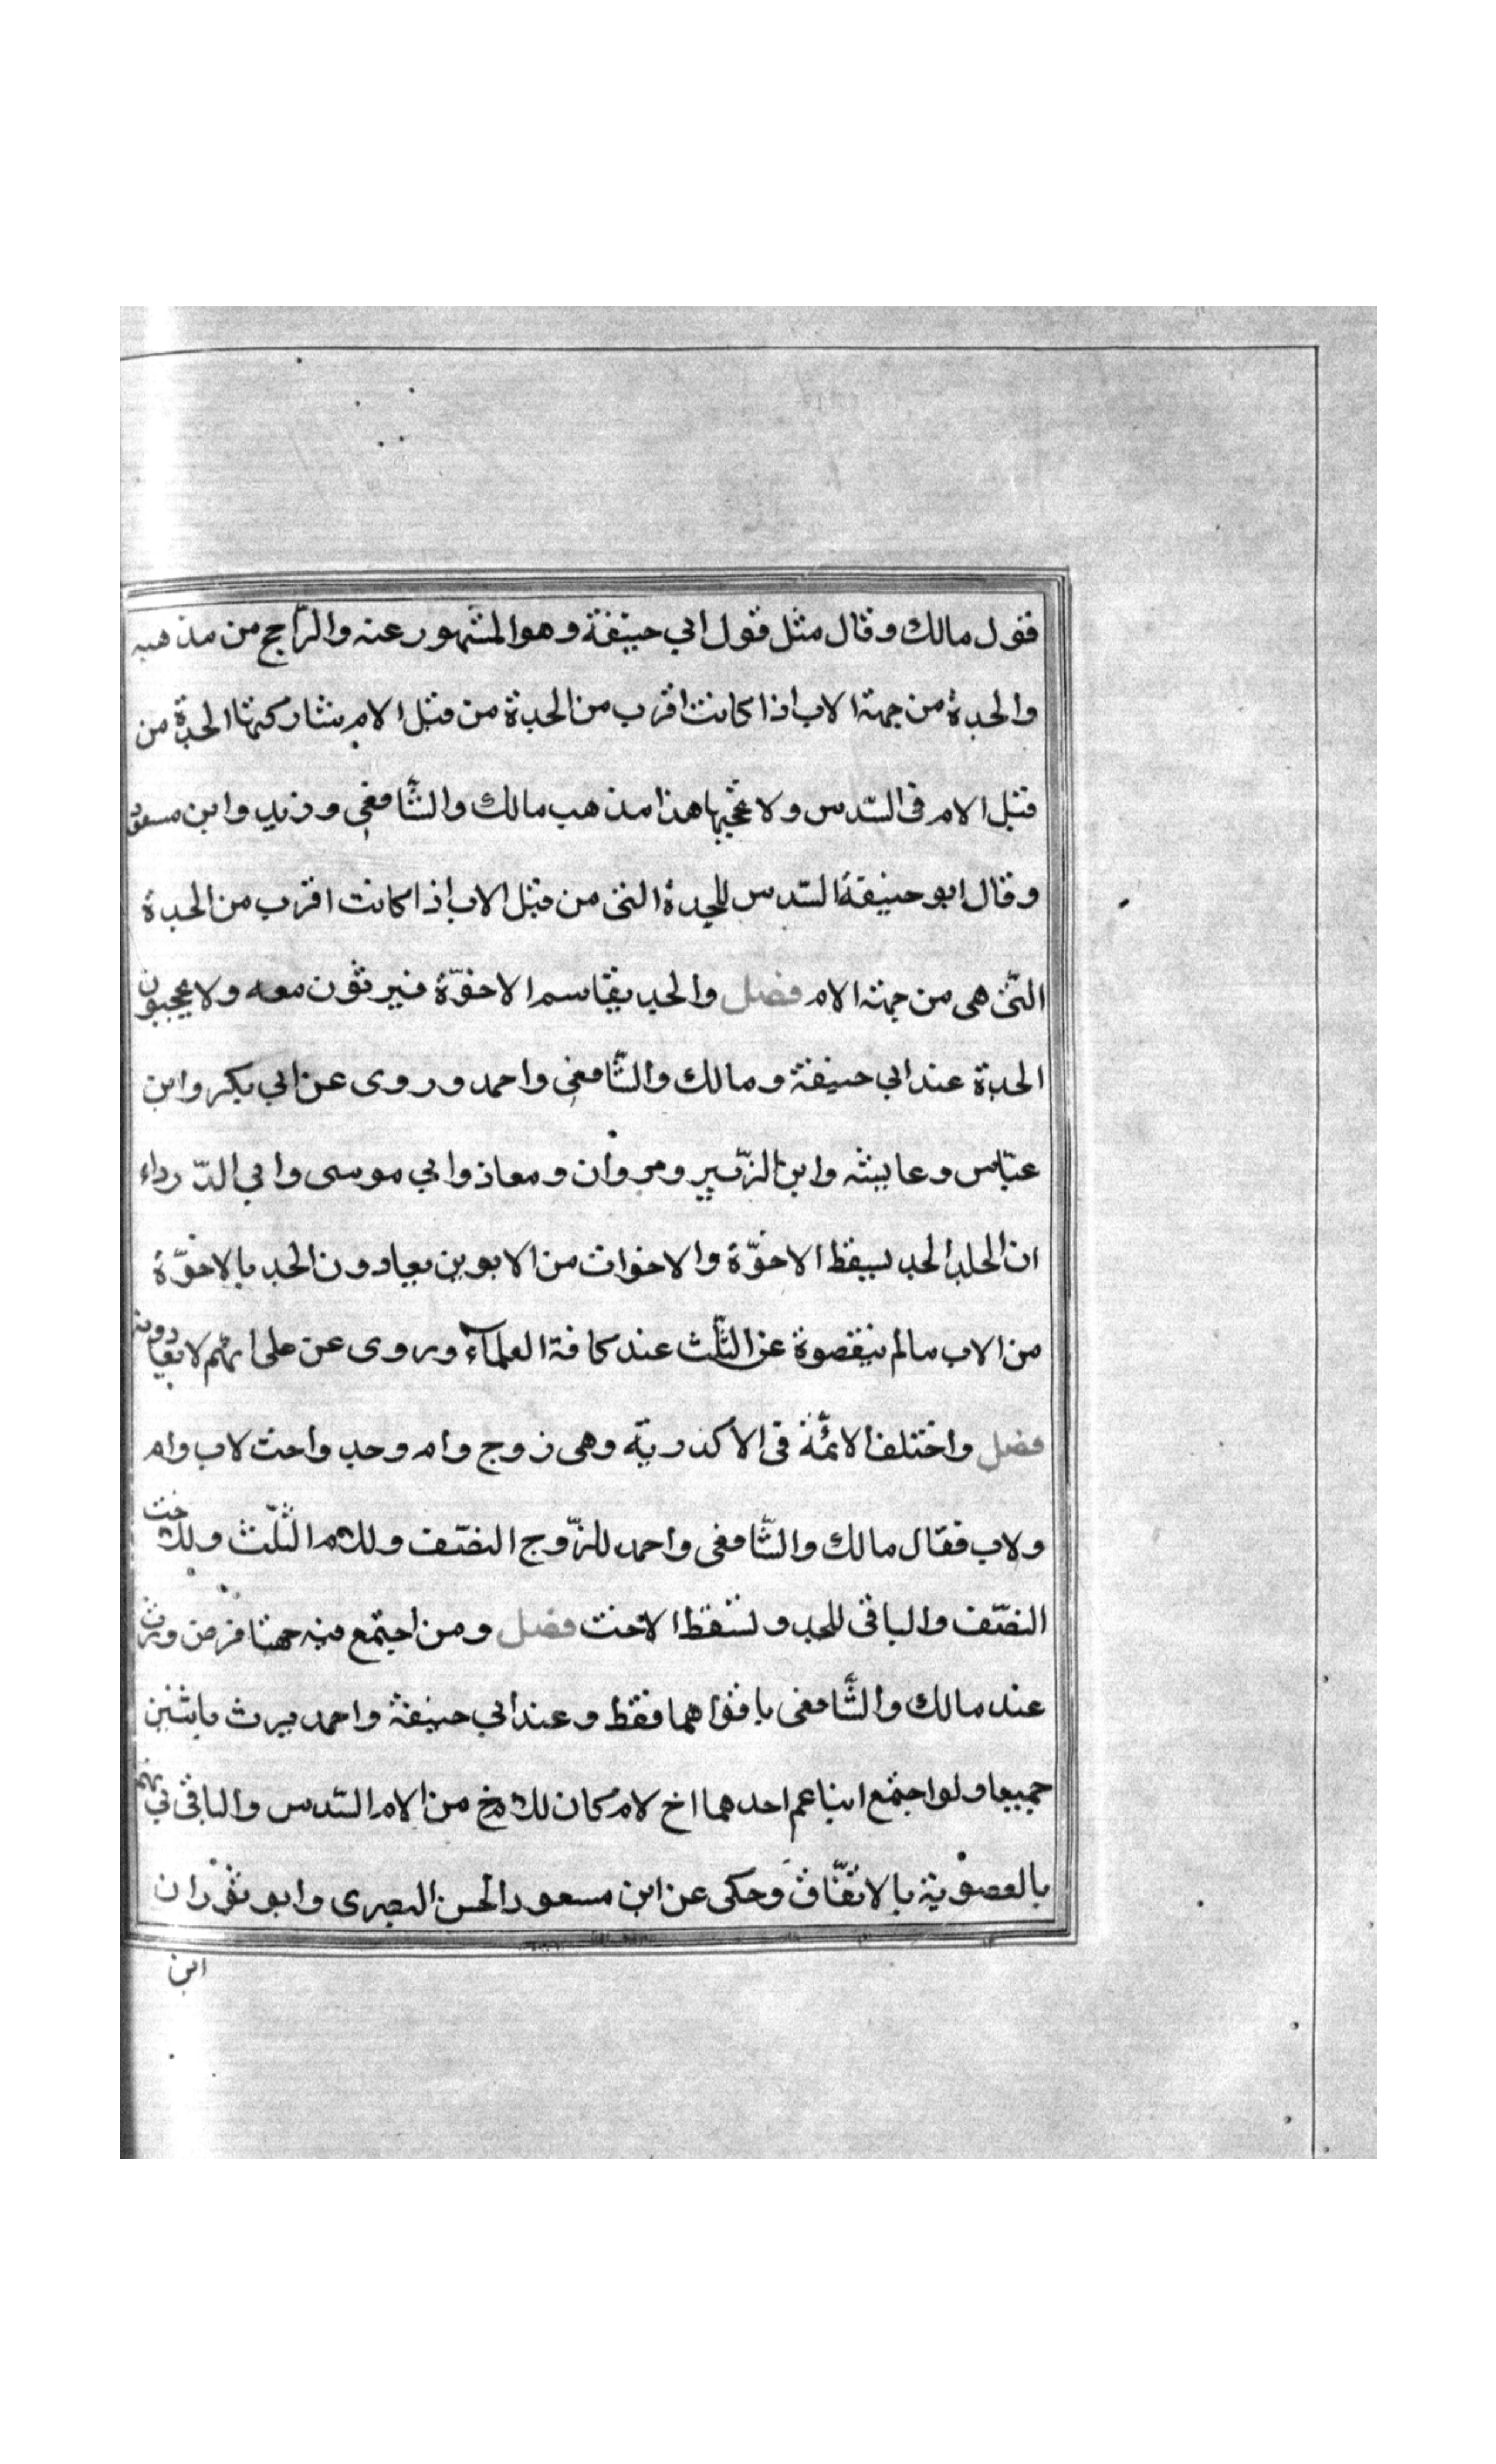 قول مالك وقال مثل قول ابي حنيفة وهو المشهور عنه والرّاجح من مذهبه
والجدة من جهة الاب اذا كانت اقرب من الجدة من قبل الام يشاركتها الجدّة من
قبل الام فى السّدس ولا تحجبها هذا مذهب مالك والشّافعي وزيد وابن مسعود
وقال ابو حنيفة السّدس للجدة التى من قبل الاب اذا كانت اقرب من الجدة
التّى هى من جهة الام فصل والجد يقاسم الاخوّة فيرثون معه ولا يحجبون
الجدة عند ابي حنيفة ومالك والشّافعي واحمد وروى عن ابي بكر وابن
عبّاس وعايشه وابن الزّبير ومروان ومعاذ وابي موسى وابي الدّرداء
ان الجد يسقط الاخوّة والاخوات من الابوين يعادون الجد بالاخوّة
من الاب مالم ينقصوة عن الثّلث عند كافة العلمآء وروى عن على انّهم لا يعادونه
فصل واختلف الائمّة فى الاكدرية وهى زوج وام وجد واخت لاب وام
ولاب فقال مالك والشّافعى واحمد للزّوج النصّف وللام الثّلث وللاخت
النصّف والباقى للجد وتسقط الاخت فصل ومن اجتمع فيه جهتا فرض ورث
عند مالك والشّافعى باقواهما فقط وعند ابي حنيفة واحمد يرث باثنين
جميعا ولو اجتمع ابنا عم احدهما اخ لام كان للاخ من الام السّدس والباقى بينهم
بالعصوبة بالاتفّاق وحكى عن ابن مسعود الحسن البصرى وابو ثور ان
ابن